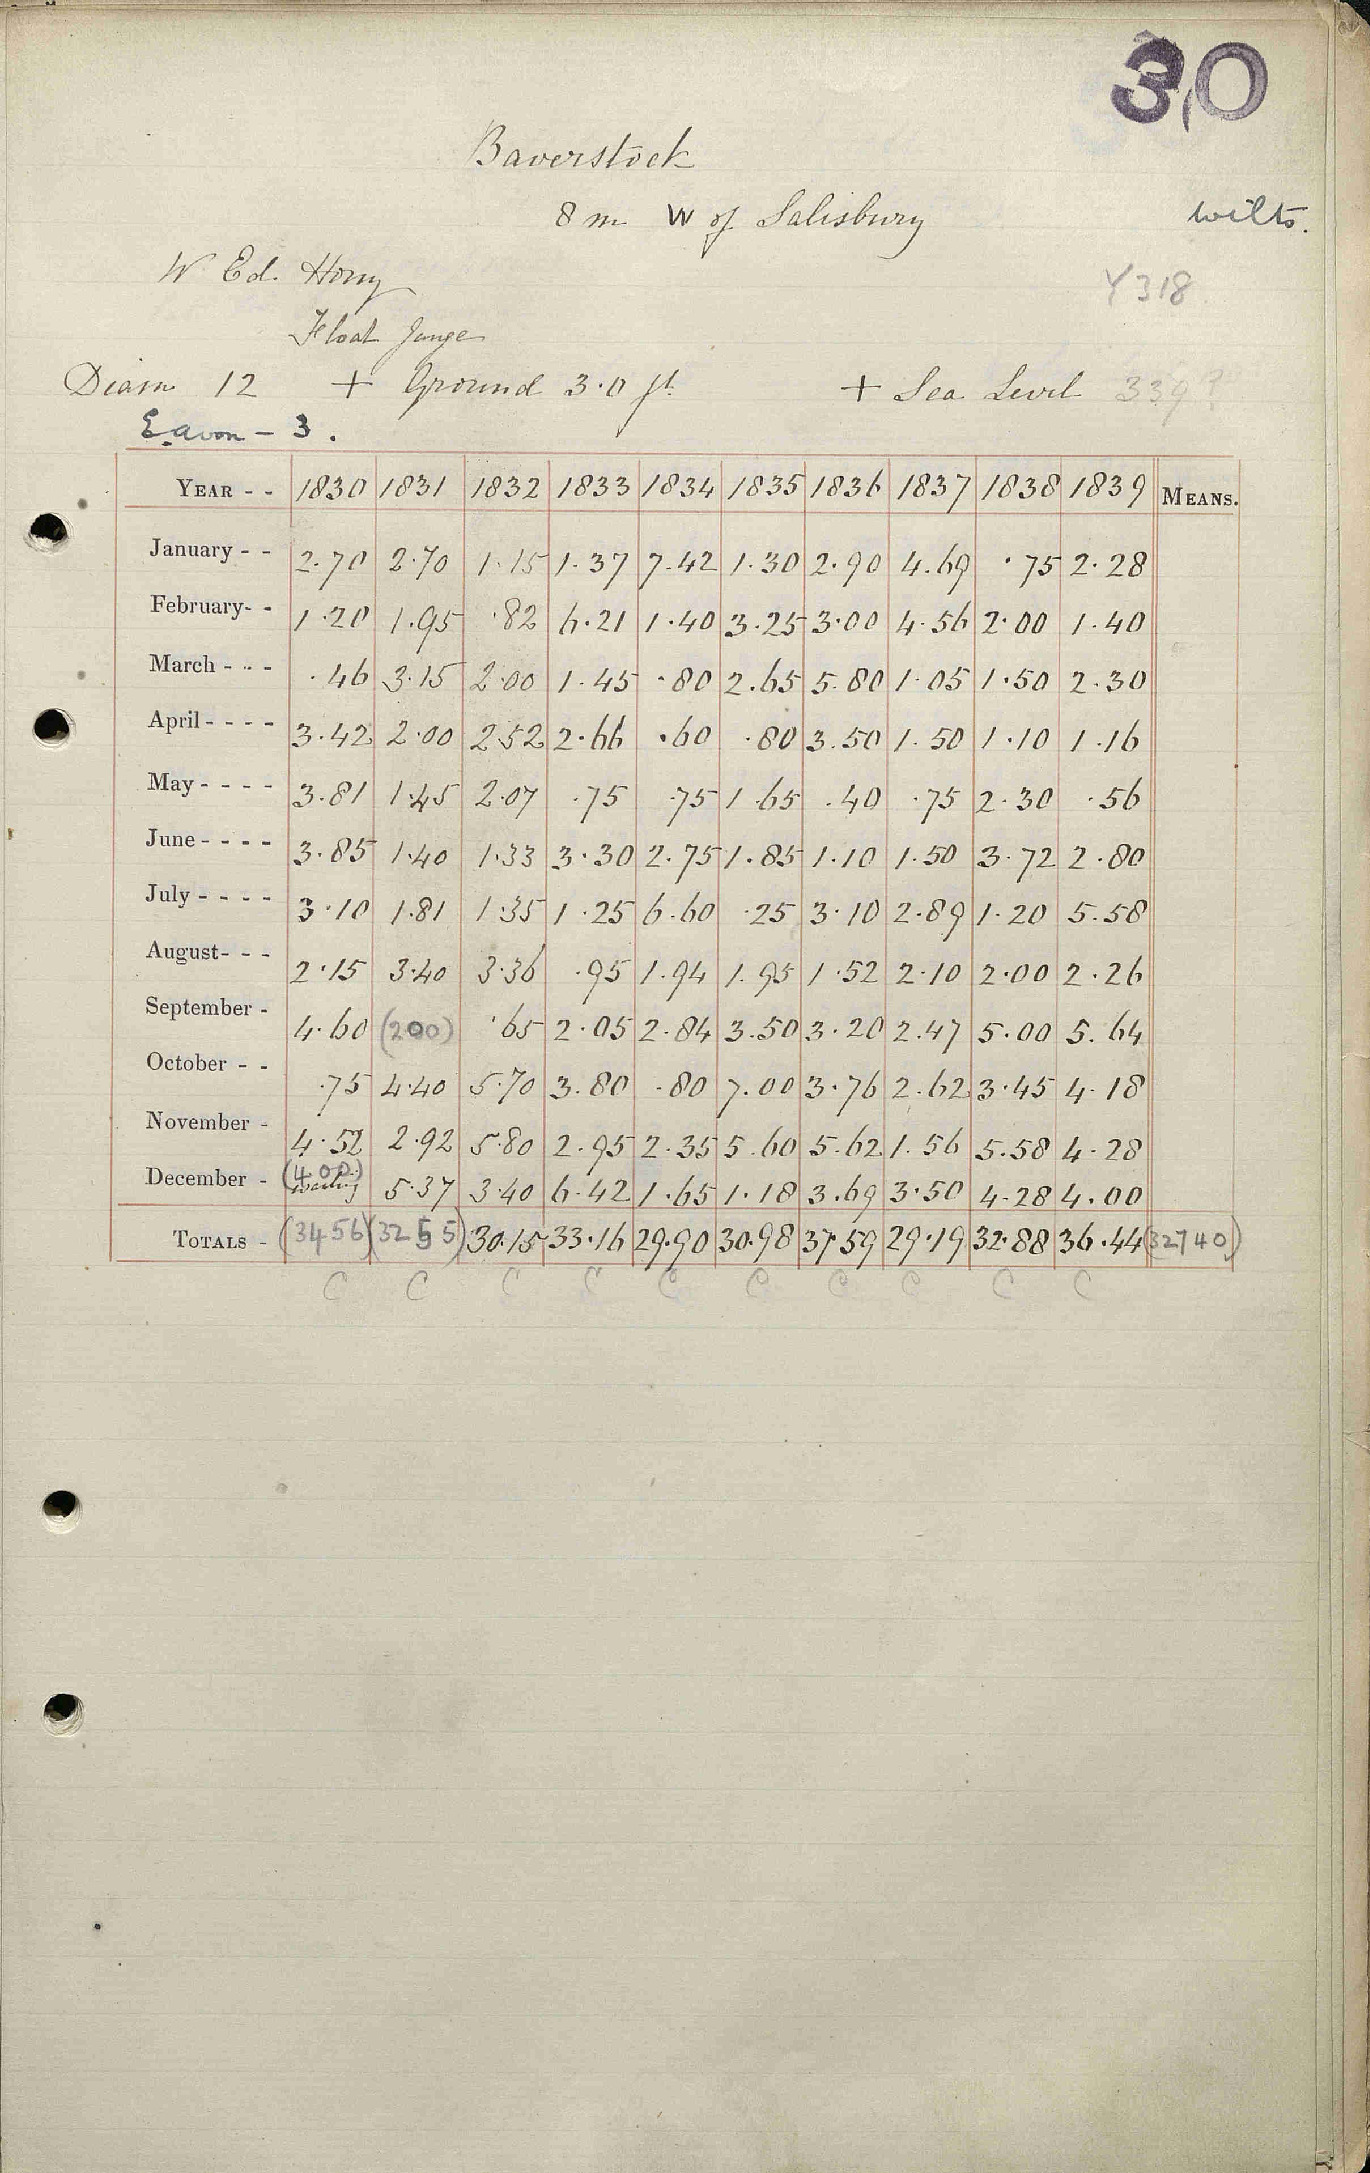 30
Baverstock
8 m W of Salisbury
Wilts.
W Ed. Hony
Y318
Float Gauge
Diam 12 + Ground 3.0 ft. + Sea Level 339?
E. avon - 3.
YEAR - - 1830 1831 1832 1833 1834 1835 1836 1837 1838 1839 MEANS.
January - - 2.70 2.70 1.15 1.37 7.42 1.30 2.90 4.69 .75 2.28
February - - 1.20 1.95 .82 6.21 1.40 3.25 3.00 4.56 2.00 1.40
March - - - .46 3.15 2.00 1.45 .80 2.65 5.80 1.05 1.50 2.30
April - - - - 3.42 2.00 2.52 2.66 .60 .80 3.50 1.50 1.10 1.16
May - - - - 3.81 1.45 2.07 .75 .75 1.65 .40 .75 2.30 .56
June - - - - 3.85 1.40 1.33 3.30 2.75 1.85 1.10 1.50 3.72 2.80
July - - - - 3.10 1.81 1.35 1.25 6.60 .25 3.10 2.89 1.20 5.58
August - - - 2.15 3.40 3.36 .95 1.94 1.95 1.52 2.10 2.00 2.26
September - 4.60 (200) .65 2.05 2.84 3.50 3.20 2.47 5.00 5.64
October - - .75 4.40 5.70 3.80 .80 7.00 3.76 2.62 3.45 4.18
November - 4.52 2.92 5.80 2.95 2.35 5.60 5.62 1.56 5.58 4.28
December - (400) wanting 5.37 3.40 6.42 1.65 1.18 3.69 3.50 4.28 4.00
TOTALS - (3456) (3255) 30.15 33.16 29.90 30.98 37.59 29.19 32.88 36.44 (32740)
C C C C C C C C C C